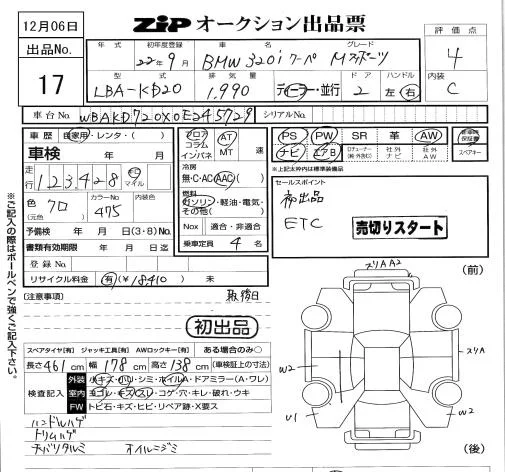 12月06日
ZIP オークション出品票
評価点
4
内装
C
出品No.
17
年式 初年度登録 車名 グレード
22年9月 BMW 320i クーペ Mスポーツ
型式 排気量 ドア ハンドル
LBA-KD20 1,990 ディーラー・並行 2 左・右
車台No. WBAKD720X0E245729 シリアルNo.
車歴 自家用・レンタ・( )
車検 年 月
走行 123,428 km マイル
色(元色) クロ カラーNo 475 内装色
予備検 年 月 日(3・8)No.
書類有効期限 年 月 日迄
登録No.
リサイクル料金 有(¥18,410) 未
フロア コラム インパネ AT MT 速
冷房 無・C・AC・AAC( )
燃料 ガソリン・軽油・電気・その他( )
Nox 適合・非適合
乗車定員 4 名
PS PW SR 革 AW
ナビ エアB 社外ナビ 社外AW スペアキー
※上記太枠内は標準装備品
セールスポイント
初出品
ETC
売切りスタート
※ご記入の際はボールペンで強くご記入下さい。
(注意事項)
後日
初出品
スペアタイヤ[有] ジャッキ工具[有] AWロックキー[有] ある場合のみ○
長さ461cm 幅178cm 高さ138cm (車検証上の寸法)
検査記入
外装 小キズ・小凹・シミ・ホイルA・ドアミラー(A・ワレ)
室内 ヨゴレ・キズ/スレ・コゲ・穴・キレ・破れ・ウキ
FW トビ石・キズ・ヒビ・リペア跡・X要ス
ハンドルハゲ
トリムハゲ
オイルニジミ
スリA A2
(前)
スリA
W2
U1
W2
(後)